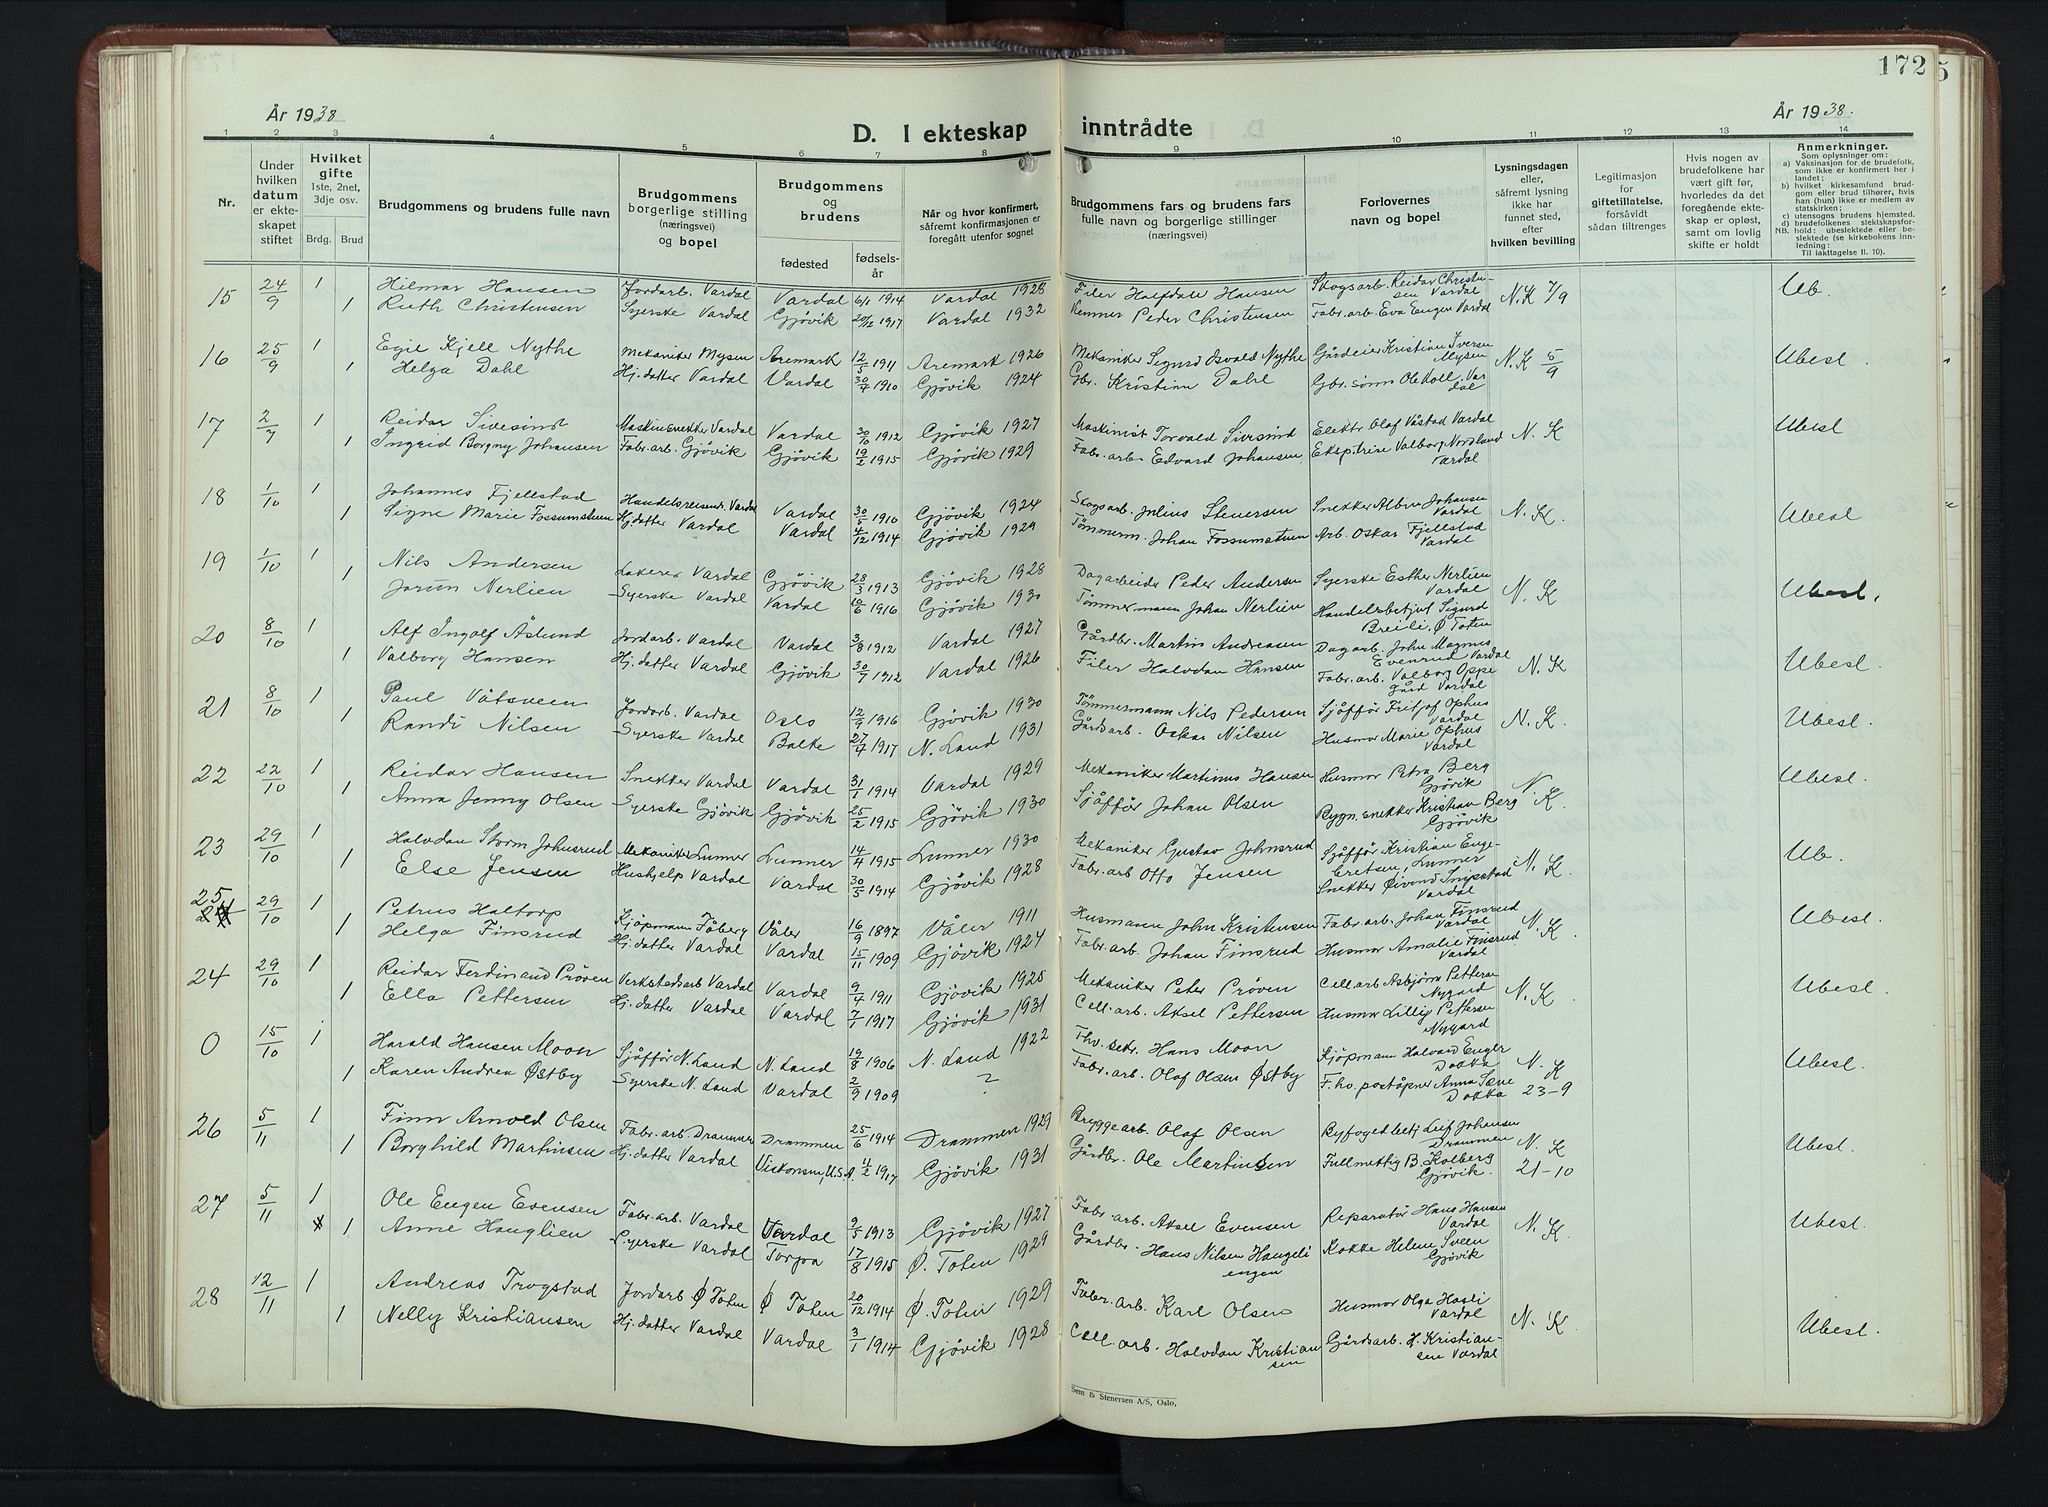 172
5
År 1938
D. I ekteskap inntrådte
År 1938.
1 2 3 4 5 6 7 8 9 10 11 12 13 14
Nr.
Under hvilken datum er ekteskapet stiftet
Hvilket gifte 1ste, 2net, 3dje osv.
Brdg. Brud
Brudgommens og brudens fulle navn
Brudgommens borgerlige stilling (næringsvei) og bopel
Brudgommens og brudens
fødested
fødselsår
Når og hvor konfirmert, såfremt konfirmasjonen er foregått utenfor sognet
Brudgommens fars og brudens fars fulle navn og borgerlige stillinger (næringsvei)
Forlovernes navn og bopel
Lysningsdagen eller, såfremt lysning ikke har funnet sted, efter hvilken bevilling
Legitimasjon for giftetillatelse, forsåvidt sådan tiltrenges
Hvis nogen av brudefolkene har vært gift før, hvorledes da det foregående ekteskap er opløst, samt om lovlig skifte er holdt
Anmerkninger.
Som oplysninger om:
a) Vaksinasjon for de brudefolk, som ikke er konfirmert her i landet;
b) hvilket kirkesamfund brudgom eller brud tilhører, hvis han (hun) ikke er medlem av statskirken;
c) utensogns brudens hjemsted.
d) brudefolkenes slektskapsforhold: ubeslektede eller beslektede (se kirkebokens innledning:
NB. Til iakttagelse II. 10).
15 24/9 1 Hilmar Hansen Jordarb. Vardal Vardal 6/1 1914 Vardal 1928 Filer Halfdan Hansen Skogsarb. Reidar Christensen Vardal N.K 7/9 Ub.
1 Ruth Christensen Syerske Vardal Gjøvik 20/12 1917 Vardal 1932 Kemner Peder Christensen Fabr.arb. Eva Engen Vardal
16 25/9 1 Egil Kjell Nythe Mekaniker Mysen Aremark 12/5 1911 Aremark 1926 Mekaniker Sigurd Osvald Nythe Gårdeier Kristian Iversen Mysen N.K 5/9 Ubesl.
1 Helga Dahl Hj.datter Vardal Vardal 30/7 1910 Gjøvik 1924 Gbr. Kristian Dahl Gbr. sønn Ole Koll, Vardal
17 2/7 1 Reidar Sivesind Maskinsnekker Vardal Vardal 30/10 1912 Gjøvik 1927 Maskinist Torvald Sivesind Elektr. Olaf Våstad Vardal N. K Ubesl
1 Ingrid Borgny Johansen Fabr.arb. Gjøvik Gjøvik 19/2 1915 Gjøvik 1929 Fabr.arb. Edvard Johansen Ekspitrise Valborg Nordland Vardal
18 1/10 1 Johannes Fjellstad Handelsreisende Vardal Vardal 30/5 1910 Gjøvik 1924 Skogsarb. Julius Stenersen Snekker Albin Johansen Vardal N. K. Ubesl
1 Signe Marie Fossumstuen Hj.datter Vardal Vardal 4/12 1914 Gjøvik 1929 Tømmerm. Johan Fossumstuen Arb. Oskar Fjellstad Vardal
19 1/10 1 Nils Andersen Lakerer Vardal Gjøvik 28/3 1913 Gjøvik 1928 Dagarbeider Peder Andersen Syerske Esther Nerlien Vardal N. K Ubesl.
1 Jorun Nerlien Syerske Vardal Vardal 10/6 1916 Gjøvik 1930 Tømmermann Johan Nerlien Handelsbetjent Sigurd Breili, Ø Toten
20 8/10 1 Alf Ingolf Åslund Jordarb. Vardal Vardal 3/8 1912 Vardal 1927 Gårdbr. Martin Andreasen Dagarb. John Magnus Evenrud Vardal N. K Ubesl.
1 Valborg Hansen Hj.datter Vardal Gjøvik 30/7 1912 Vardal 1926 Filer Halvdan Hansen Fabr.arb. Valborg Oppegård Vardal
21 8/10 1 Paul Våtsveen Jordarb. Vardal Oslo 12/9 1916 Gjøvik 1930 Tømmermann Nils Pedersen Sjåffør Fritjof Ophus Vardal N. K. Ubesl.
1 Randi Nilsen Syerske Vardal Balke 27/4 1917 N. Land 1931 Gårdsarb. Oskar Nilsen Husmor Marie Ophus Vardal
22 22/10 1 Reidar Hansen Snekker Vardal Vardal 31/1 1914 Vardal 1929 Mekaniker Martinus Hansen Husmor Petra Berg Gjøvik N. K. Ubesl.
1 Anna Jenny Olsen Syerske Gjøvik Gjøvik 25/2 1915 Gjøvik 1930 Sjåffør Johan Olsen Bygn.snekker Kristian Berg Gjøvik
23 29/10 1 Halvdan Storm Johnsrud Mekaniker Lunner Lunner 14/4 1915 Lunner 1930 Mekaniker Gustav Johnsrud Sjåffør Kristian Engebretsen, Lunner N. K. Ub.
1 Else Jensen Hushjelp Vardal Vardal 30/5 1914 Gjøvik 1928 Fabr.arb Otto Jensen Snekker Øivind Snipstad Vardal
25 24 29/10 1 Petrus Haltorp Kjøpmann Fåberg Våler 16/9 1897 Våler 1911 Husmann John Kristensen Fabr.arb. Johan Finsrud Vardal N. K. Ubesl.
1 Helga Finsrud Hj.datter Vardal Vardal 15/11 1909 Gjøvik 1924 Fabr.arb. Johan Finsrud Husmor Amalie Finsrud Vardal
24 29/10 1 Reidar Ferdinand Prøven Verkstedsarb Vardal Vardal 9/4 1911 Gjøvik 1925 Mekaniker Peter Prøven Cell.arb Asbjørn Pettersen Nygard N. K. Ubesl.
1 Ella Pettersen Hj.datter Vardal Vardal 7/1 1917 Gjøvik 1931 Cell.arb. Aksel Pettersen Husmor Lilly Pettersen Nygard
0 15/10 1 Harald Hansen Moon Sjåffør N. Land N. Land 19/8 1906 N. Land 1922 Fhv. Hans Moon Kjøpmann Halvard Enger Dokka N. K Ubesl.
1 Karen Andrea Østby Syerske N. Land Vardal 2/9 1909 ? Fabr.arb. Olaf Olsen Østby F.hv. poståpner Anna Dokka 23-9
26 5/11 1 Finn Arnold Olsen Fabr.arb. Drammen Drammen 25/6 1914 Drammen 1929 Bryggearb. Olaf Olsen Byfogedbetj Leif Johansen Drammen N. K Ubesl.
1 Borghild Martinsen Hj.datter Vardal Viskonsin, U.S.A. 11/2 1917 Gjøvik 1931 Gårdbr. Ole Martinsen Fullmektig B. Kolberg Gjøvik. 21-10
27 5/11 1 Ole Engen Evensen Fabr.arb. Vardal Vardal 9/5 1913 Gjøvik 1927 Fabr.arb. Aksel Evensen Reparatør Hans Hansen Vardal N. K. Ubesl.
1 Anne Hauglien Syerske Vardal Torpa 17/8 1915 Ø. Toten 1929 Gårdbr. Hans Nilsen Haugeliengen Kokke Helene Sveen Gjøvik
28 12/11 1 Andreas Trogstad Jordarb Ø Toten Ø Toten 20/12 1914 Ø. Toten 1929 Fabr.arb. Karl Olsen Husmor Olga Hasli Vardal N. K. Ubesl.
1 Nelly Kristiansen Hj.datter Vardal Vardal 3/1 1914 Gjøvik 1928 Cell.arb. Halvdan Kristiansen Gårdsarb. H. Kristiansen Vardal
Sem & Stenersen A/S, Oslo,